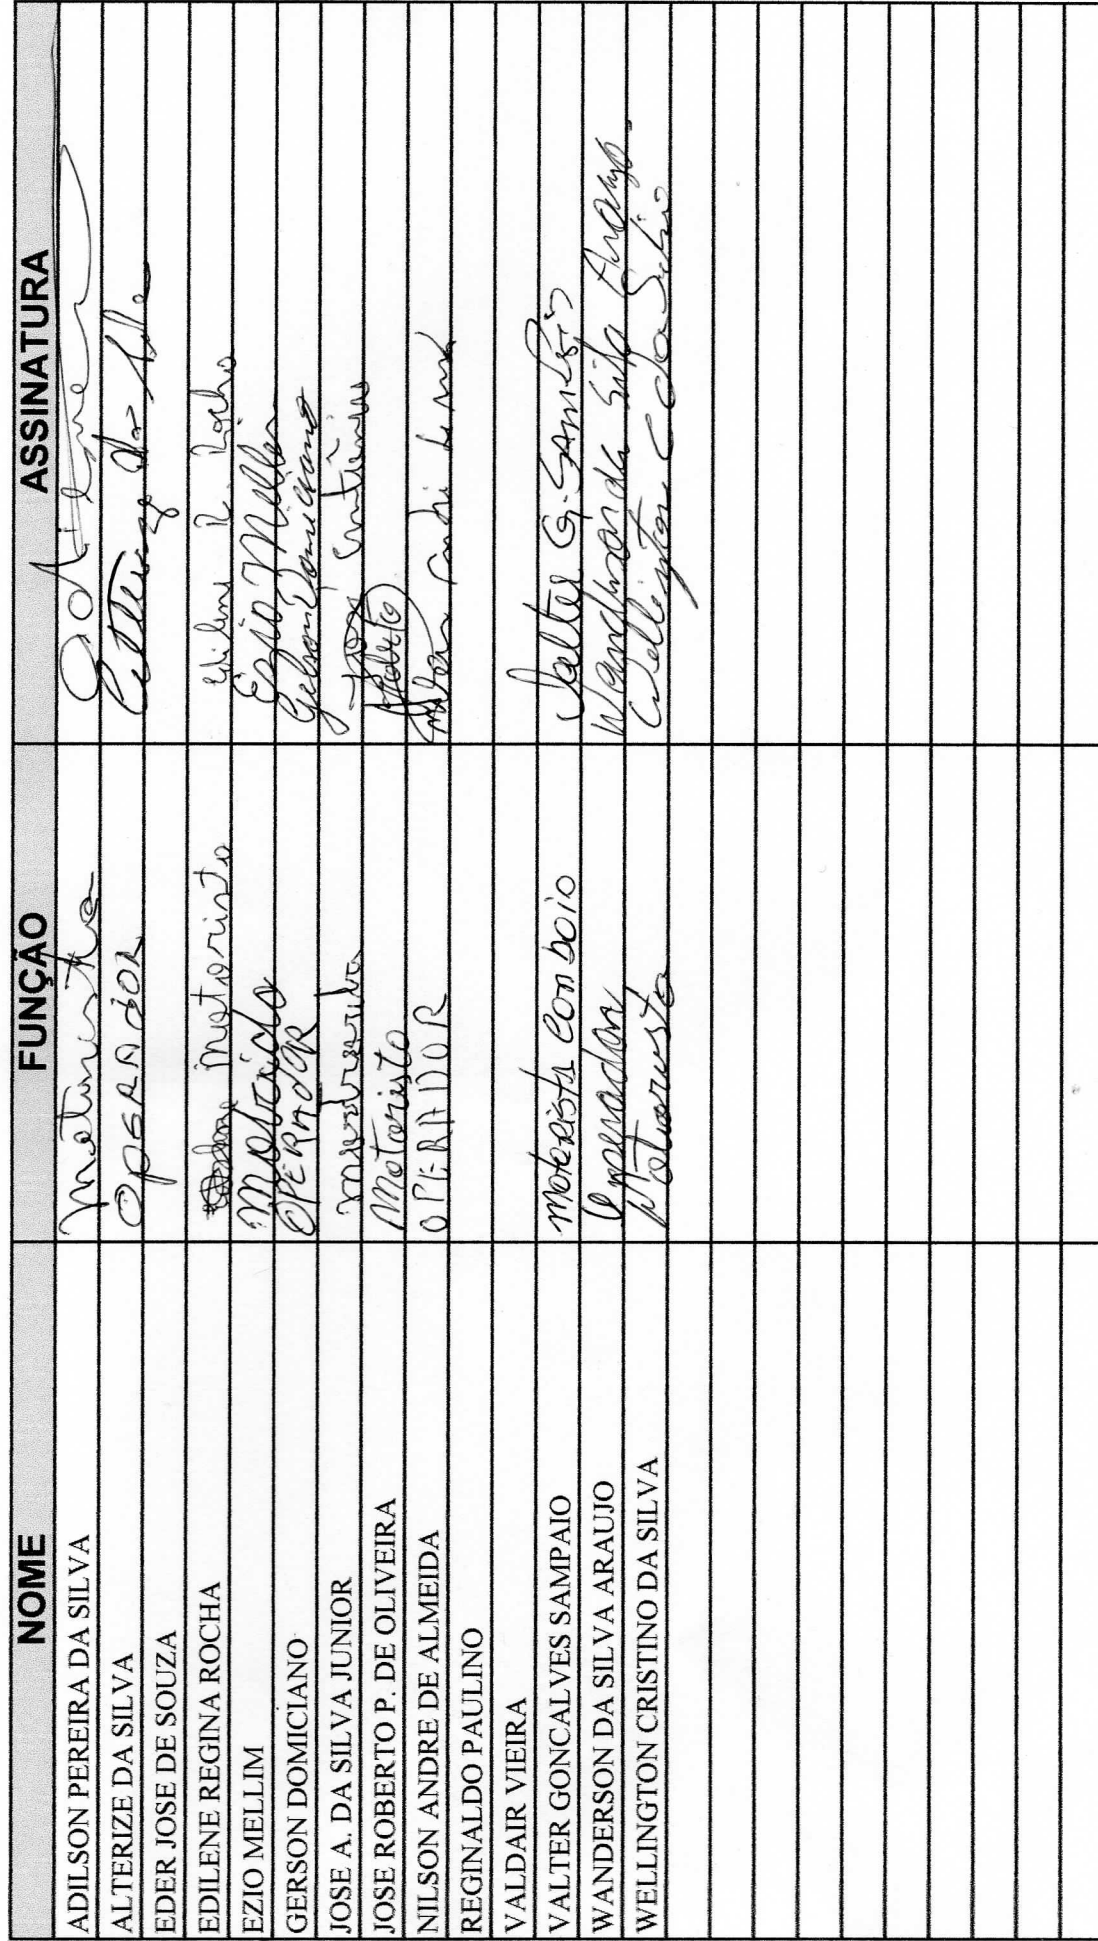 NOME FUNÇÃO ASSINATURA
ADILSON PEREIRA DA SILVA Motorista Adilson
ALTERIZE DA SILVA OPERADOR Alterize da Silva
EDER JOSE DE SOUZA
EDILENE REGINA ROCHA Motorista Edilene R. Rocha
EZIO MELLIM Ezio Mellim
GERSON DOMICIANO OPERADOR Gerson Domiciano
JOSE A. DA SILVA JUNIOR motorista
JOSE ROBERTO P. DE OLIVEIRA Motorista Roberto
NILSON ANDRE DE ALMEIDA OPERADOR
REGINALDO PAULINO
VALDAIR VIEIRA
VALTER GONCALVES SAMPAIO motorista comboio Valter G. Sampaio
WANDERSON DA SILVA ARAUJO Operador Wanderson da Silva Araujo
WELLINGTON CRISTINO DA SILVA Motorista Wellington C da Silva